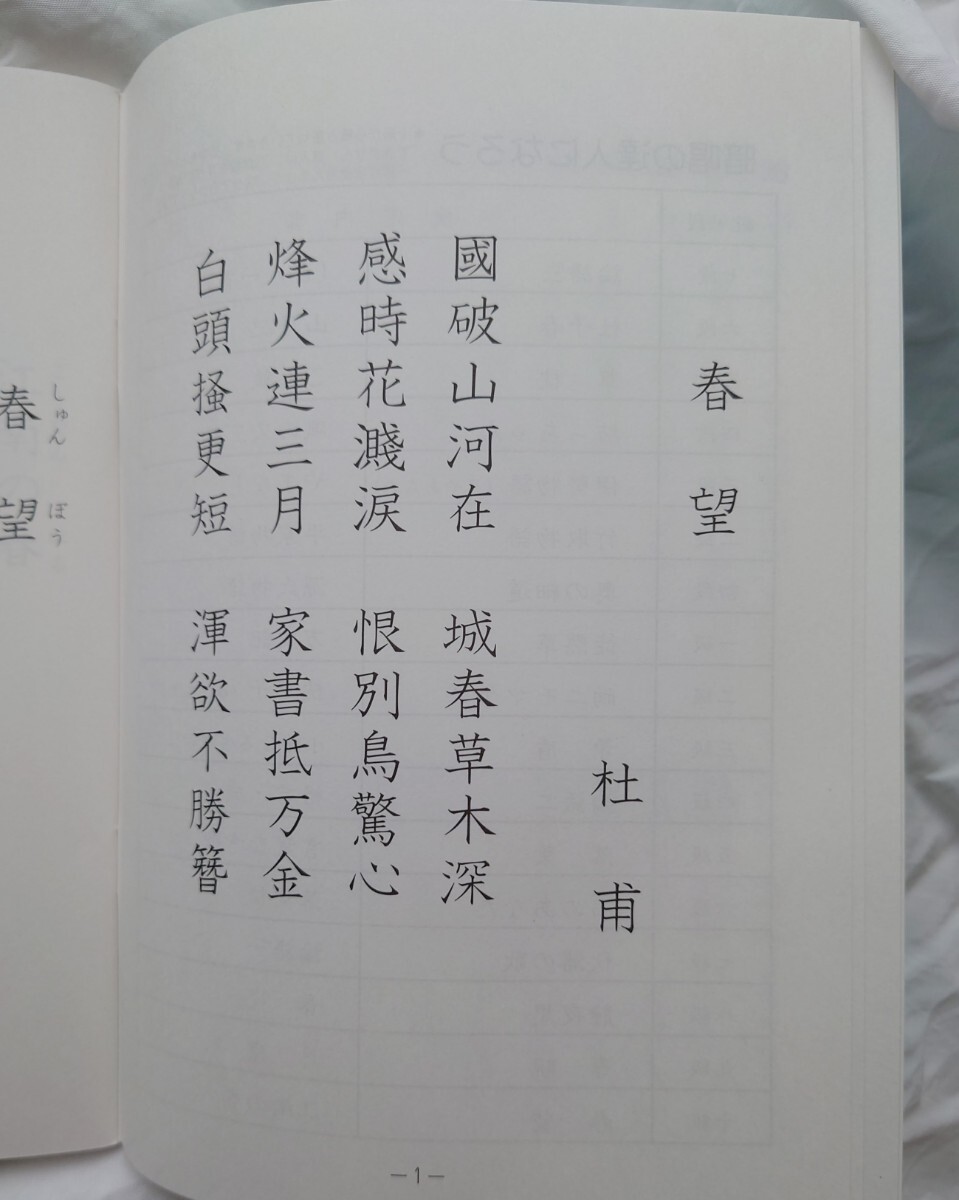 春望
杜甫
國破山河在 城春草木深
感時花濺淚 恨別鳥驚心
烽火連三月 家書抵万金
白頭搔更短 渾欲不勝簪
—1—
しゅん ぼう
春望